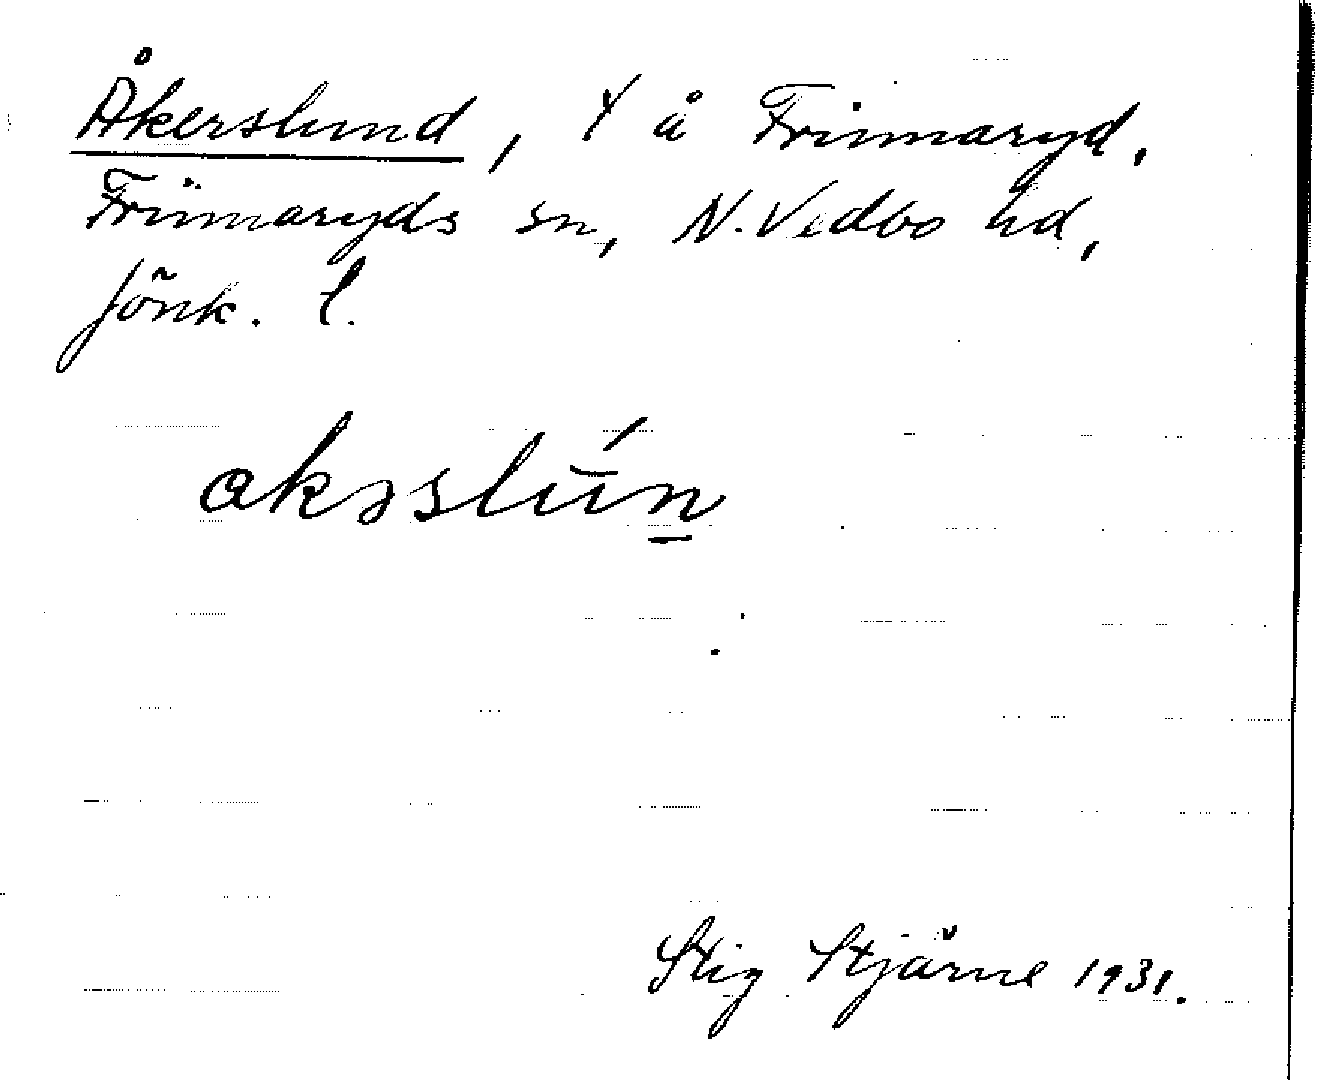 Åkerslund, t å Frinnaryd,
Frinnaryds sn, N. Vedbo hd,
Jönk. l.
akəslún
Stig Stjärne 1931.